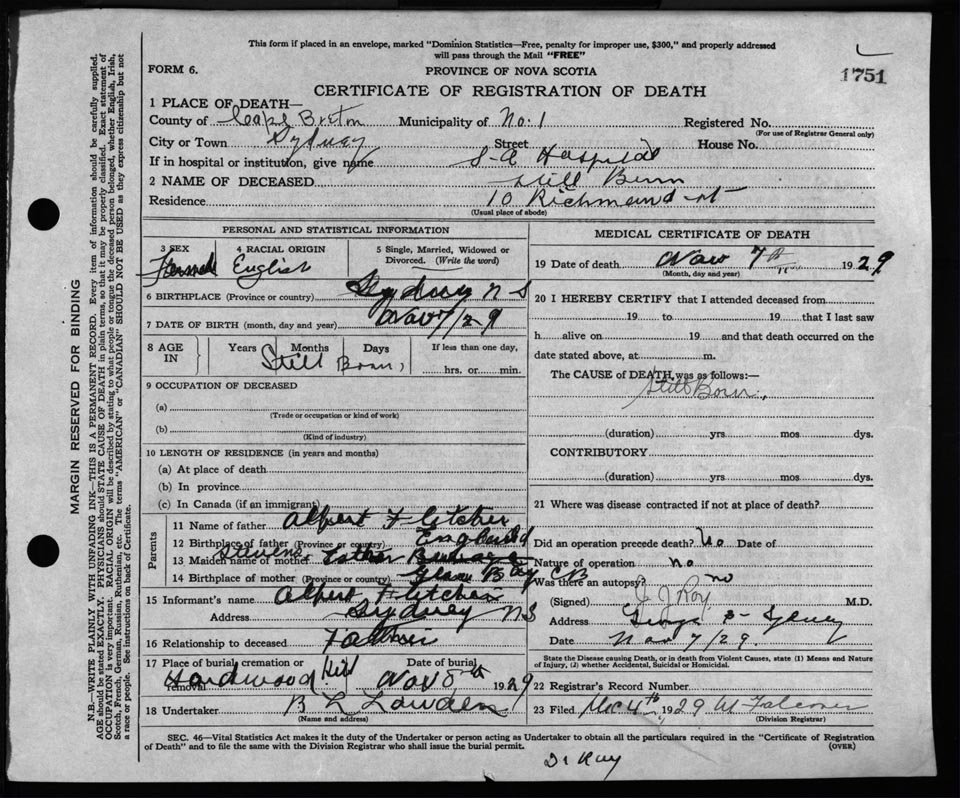 This form if placed in an envelope, marked "Dominion Statistics—Free, penalty for improper use, $300," and properly addressed
will pass through the Mail "FREE"
FORM 6.
PROVINCE OF NOVA SCOTIA
1751
CERTIFICATE OF REGISTRATION OF DEATH
1 PLACE OF DEATH—
County of Cape Breton Municipality of No. 1 Registered No.
(For use of Registrar General only)
City or Town Sydney Street House No.
If in hospital or institution, give name Hospital
2 NAME OF DECEASED Still
Residence 10 Richmond st
(Usual place of abode)
PERSONAL AND STATISTICAL INFORMATION
3 SEX 4 RACIAL ORIGIN 5 Single, Married, Widowed or
Divorced. (Write the word)
English
6 BIRTHPLACE (Province or country) Sydney N S
7 DATE OF BIRTH (month, day and year) Nov 7/29
8 AGE IN Years Months Days If less than one day,
Still Born, hrs. or min.
9 OCCUPATION OF DECEASED
(a)
(Trade or occupation or kind of work)
(b)
(Kind of industry)
10 LENGTH OF RESIDENCE (in years and months)
(a) At place of death
(b) In province
(c) In Canada (if an immigrant)
Parents
11 Name of father Alpert Fletcher
12 Birthplace of father (Province or country) England
13 Maiden name of mother Stevens Esther
14 Birthplace of mother (Province or country) Glace Bay CB
15 Informant's name Alpert Fletcher
Address Sydney NS
16 Relationship to deceased Father
17 Place of burial, cremation or removal Date of burial
Hardwood Hill Nov 8th 1929
18 Undertaker B L
(Name and address)
MEDICAL CERTIFICATE OF DEATH
19 Date of death Nov 7th 1929
(Month, day and year)
20 I HEREBY CERTIFY that I attended deceased from
19 to 19 that I last saw
h alive on 19 and that death occurred on the
date stated above, at m.
The CAUSE of DEATH was as follows:—
Still Born,
(duration) yrs mos dys.
CONTRIBUTORY
(duration) yrs mos dys.
21 Where was disease contracted if not at place of death?
Did an operation precede death? No Date of
Nature of operation no
Was there an autopsy? no
(Signed) J J Roy M.D.
Address Sydney
Date Nov 7/29
State the Disease causing Death, or in death from Violent Causes, state (1) Means and Nature
of Injury, (2) whether Accidental, Suicidal or Homicidal.
22 Registrar's Record Number
23 Filed 4th 1929
(Division Registrar)
SEC. 46—Vital Statistics Act makes it the duty of the Undertaker or person acting as Undertaker to obtain all the particulars required in the "Certificate of Registration
of Death" and to file the same with the Division Registrar who shall issue the burial permit. (OVER)
MARGIN RESERVED FOR BINDING
N.B.—WRITE PLAINLY WITH UNFADING INK—THIS IS A PERMANENT RECORD. Every item of information should be carefully supplied.
AGE should be stated EXACTLY. PHYSICIANS should STATE CAUSE OF DEATH in plain terms, so that it may be properly classified. Exact statement of
OCCUPATION is very important. RACIAL ORIGIN will be described by stating to what people or tongue the deceased person belonged, whether English, Irish,
Scotch, French, German, Russian, Ruthenian, etc. The terms "AMERICAN" or "CANADIAN" SHOULD NOT BE USED as they express citizenship but not
a race or people. See instructions on back of Certificate.